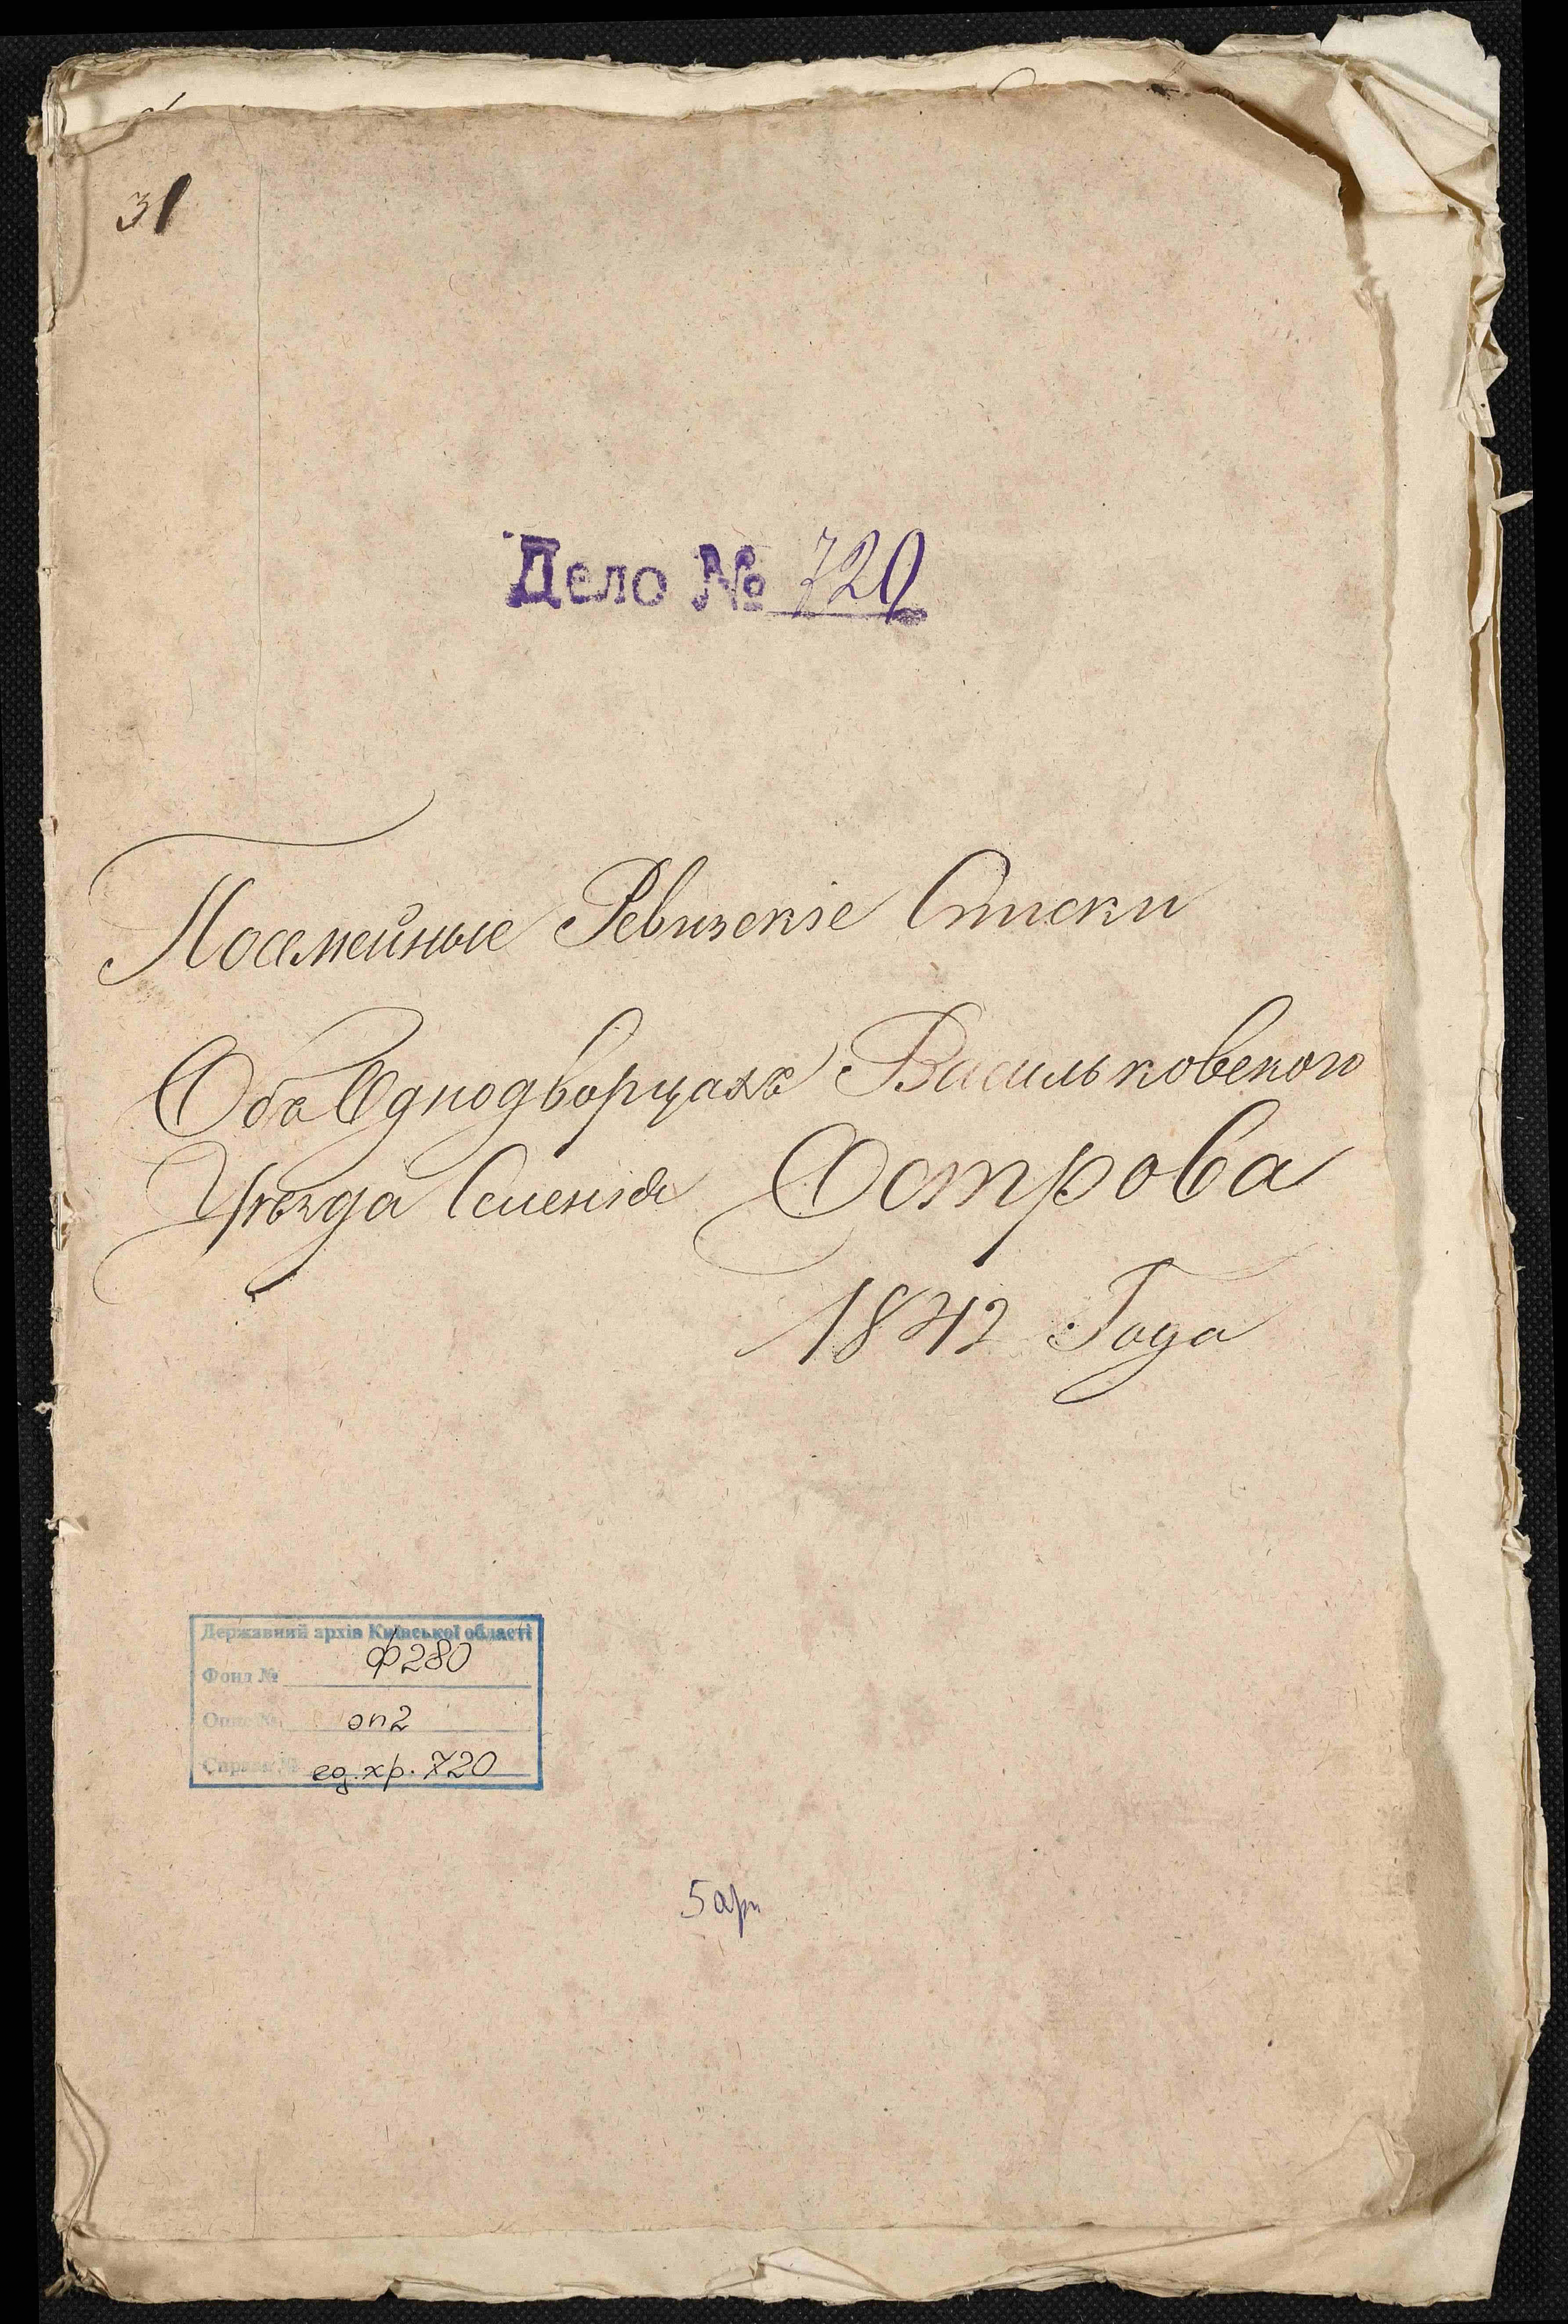 31
Дело № 720
Посемейные Ревизскіе Списки
Объ Однодворцахъ Васильковского
Уѣзда Селенія Острова
1842 Года
Державний архів Київської області
Фонд № ф280
Опис № оп2
Справа № ед.хр. 720
5 арк